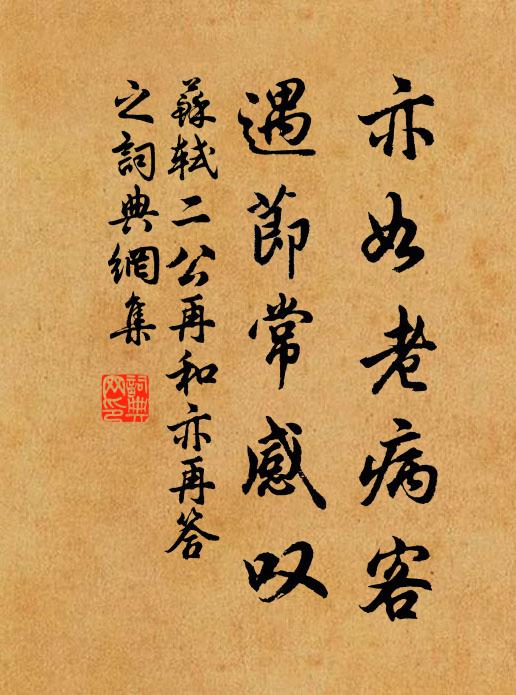 亦如老病客
遇節常感叹
蘇軾二公再和亦再答
之詞典網集
詞典网印